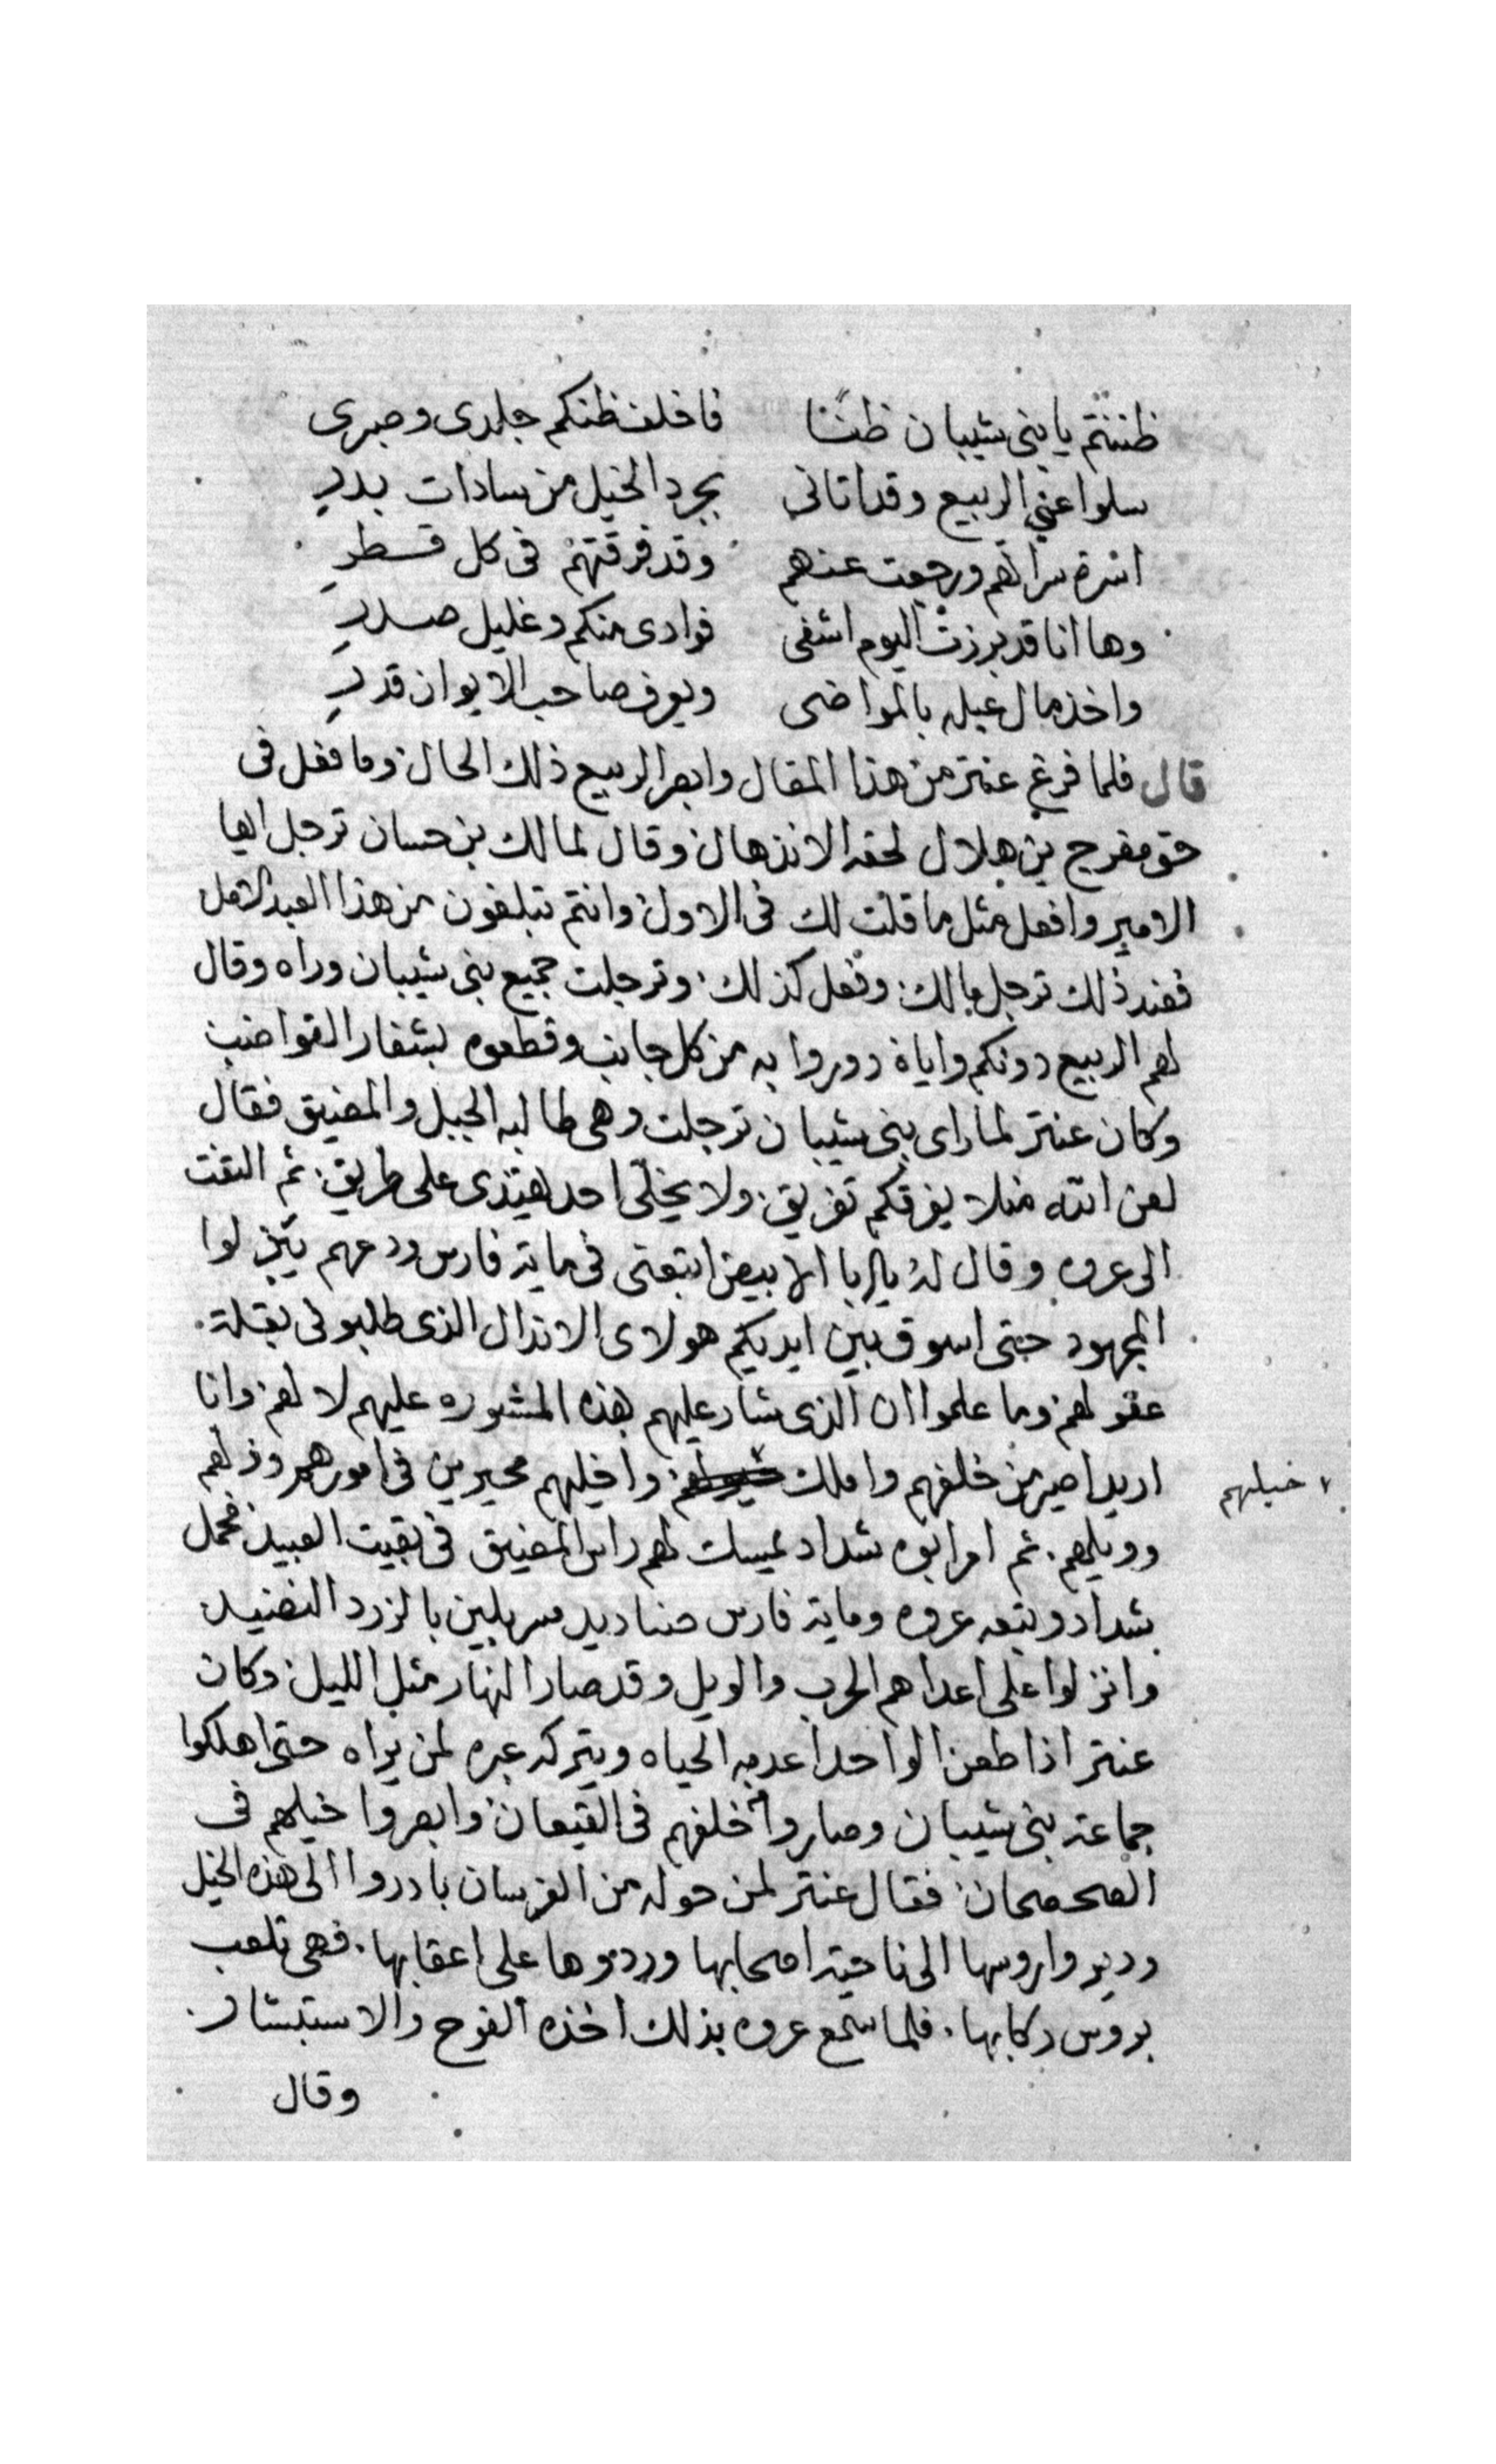 ظننتم يا بني شيبان ظنًنا فاخلف ظنكم جلدى وصبرى
سلوا عني الربيع وقد اتانى بجرد الخيل من سادات بدرِ
اسرة سراتهم ورجعت عنهم وقد فرقتهم فى كل قسطرِ
وها انا قد برزت اليوم اشفى فوادى منكم وغليل صدرِ
واخذ مال عبله بالمواضى ويعرف صاحب الايوان قدرِ
قال فلما فرغ عنتر من هذا المقال وابصر الربيع ذلك الحال وما فعل فى
حق مفرج بن هلال لحقه الانذهال وقال لمالك بن حسان ترجل ايها
الامير وافعل مثل ما قلت لك فى الاول وانتم تبلغون من هذا العبد
فعند ذلك ترجل مالك وفعل كذلك وترجلت جميع بنى شيبان وراه وقال
لهم الربيع دونكم واياه دوروا به من كل جانب وقطعوه بشفار القواضب
وكان عنتر لما راى بنى شيبان ترجلت وهى طالبه الجبل والمضيق فقال
لعن الله منلا يفرقكم تفريق ولا يخلّى احد يهتدى على طريق ثم التفت
الى عروه وقال له يابا الابيض اتبعنى فى ماية فارس ودعهم يبذلوا
المجهود حتى اسوق بين ايديكم هولاى الاندال الذى طلبونى بقلة
عقولهم وما علموا ان الذى شار عليهم بهذه المشوره عليهم لا لهم وانا
اريد اصير من خلفهم واملك خيلهم واخليهم محيرين فى امورهم وذلهم
وويلهم ثم امر ابوه شداد يمسك لهم راس المضيق فى بقيت العبيد فحمل
شداد وتبعه عروه وماية فارس صناديد مسربلين بالزرد النضيد
وانزلوا على اعداهم الحرب والويل وقد صار النهار مثل الليل وكان
عنتر اذا طعن الواحد اعدمه الحياه ويتركه عبره لمن يراه حتى اهلكوا
جماعة بنى شيبان وصاروا خلفهم فى القيعان وابصروا خيلهم فى
الصحصحان فقال عنتر لمن حوله من الفرسان بادروا الى هذه الخيل
وديروا روسها الى ناحية اصحابها وردوها على اعقابها فهى تلعب
بروس ركابها فلما سمع عروه بذلك اخذه الفرح والاستبشار
وقال